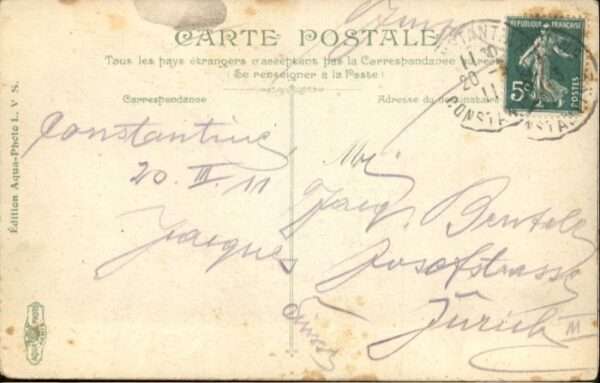 CARTE POSTALE
Tous les pays étrangers n'acceptent pas la Correspondance au recto
(Se renseigner à la Poste)
Correspondance
Adresse du destinataire
RÉPUBLIQUE FRANÇAISE
5c
POSTES
20
11
CONSTANTINE
Édition Aqua-Photo L. V S.
Constantine
20 III 11
Jacques
Jacq.
Josefstrasse
Zürich III